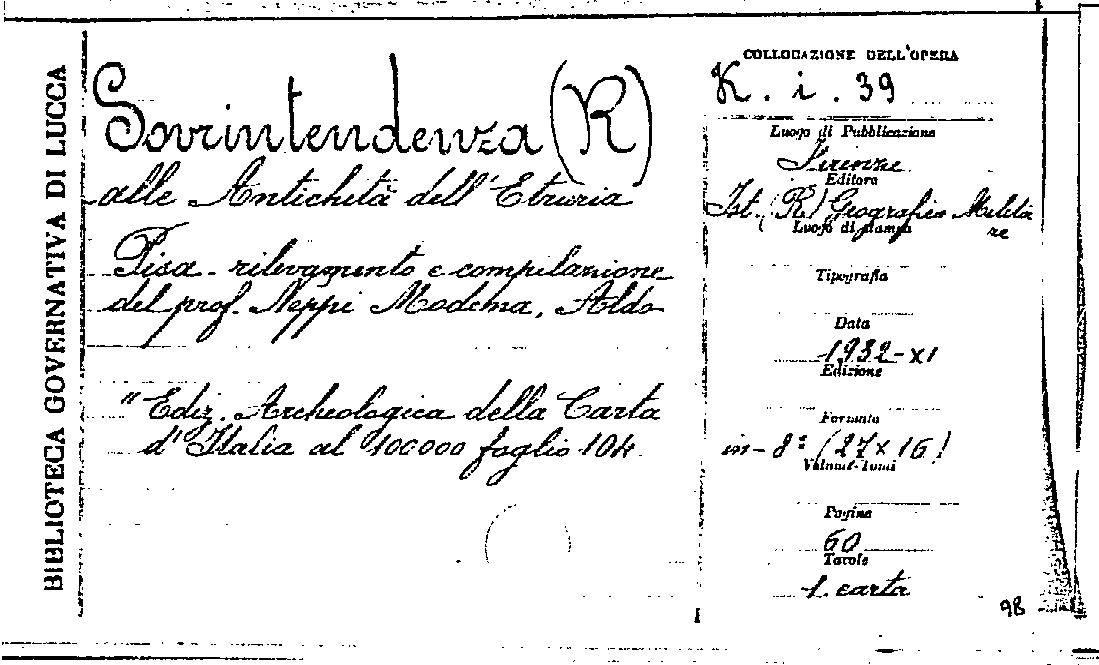 BIBLIOTECA GOVERNATIVA DI LUCCA
Sovrintendenza (R)
alle Antichità dell'Etruria
Pisa - rilevamento e compilazione
del prof. Neppi Modena, Aldo
"Ediz. Archeologica della Carta
d'Italia al 100000 foglio 104
COLLOCAZIONE DELL'OPERA
K. i. 39
Luogo di Pubblicazione
Firenze
Editore
Ist. (R) Geografico Milita
re
Luogo di stampa
Tipografia
Data
1932-XI
Edizione
Formato
in-8° (27×16)
Volumi-Tomi
Pagine
60
Tavole
1. carta
98